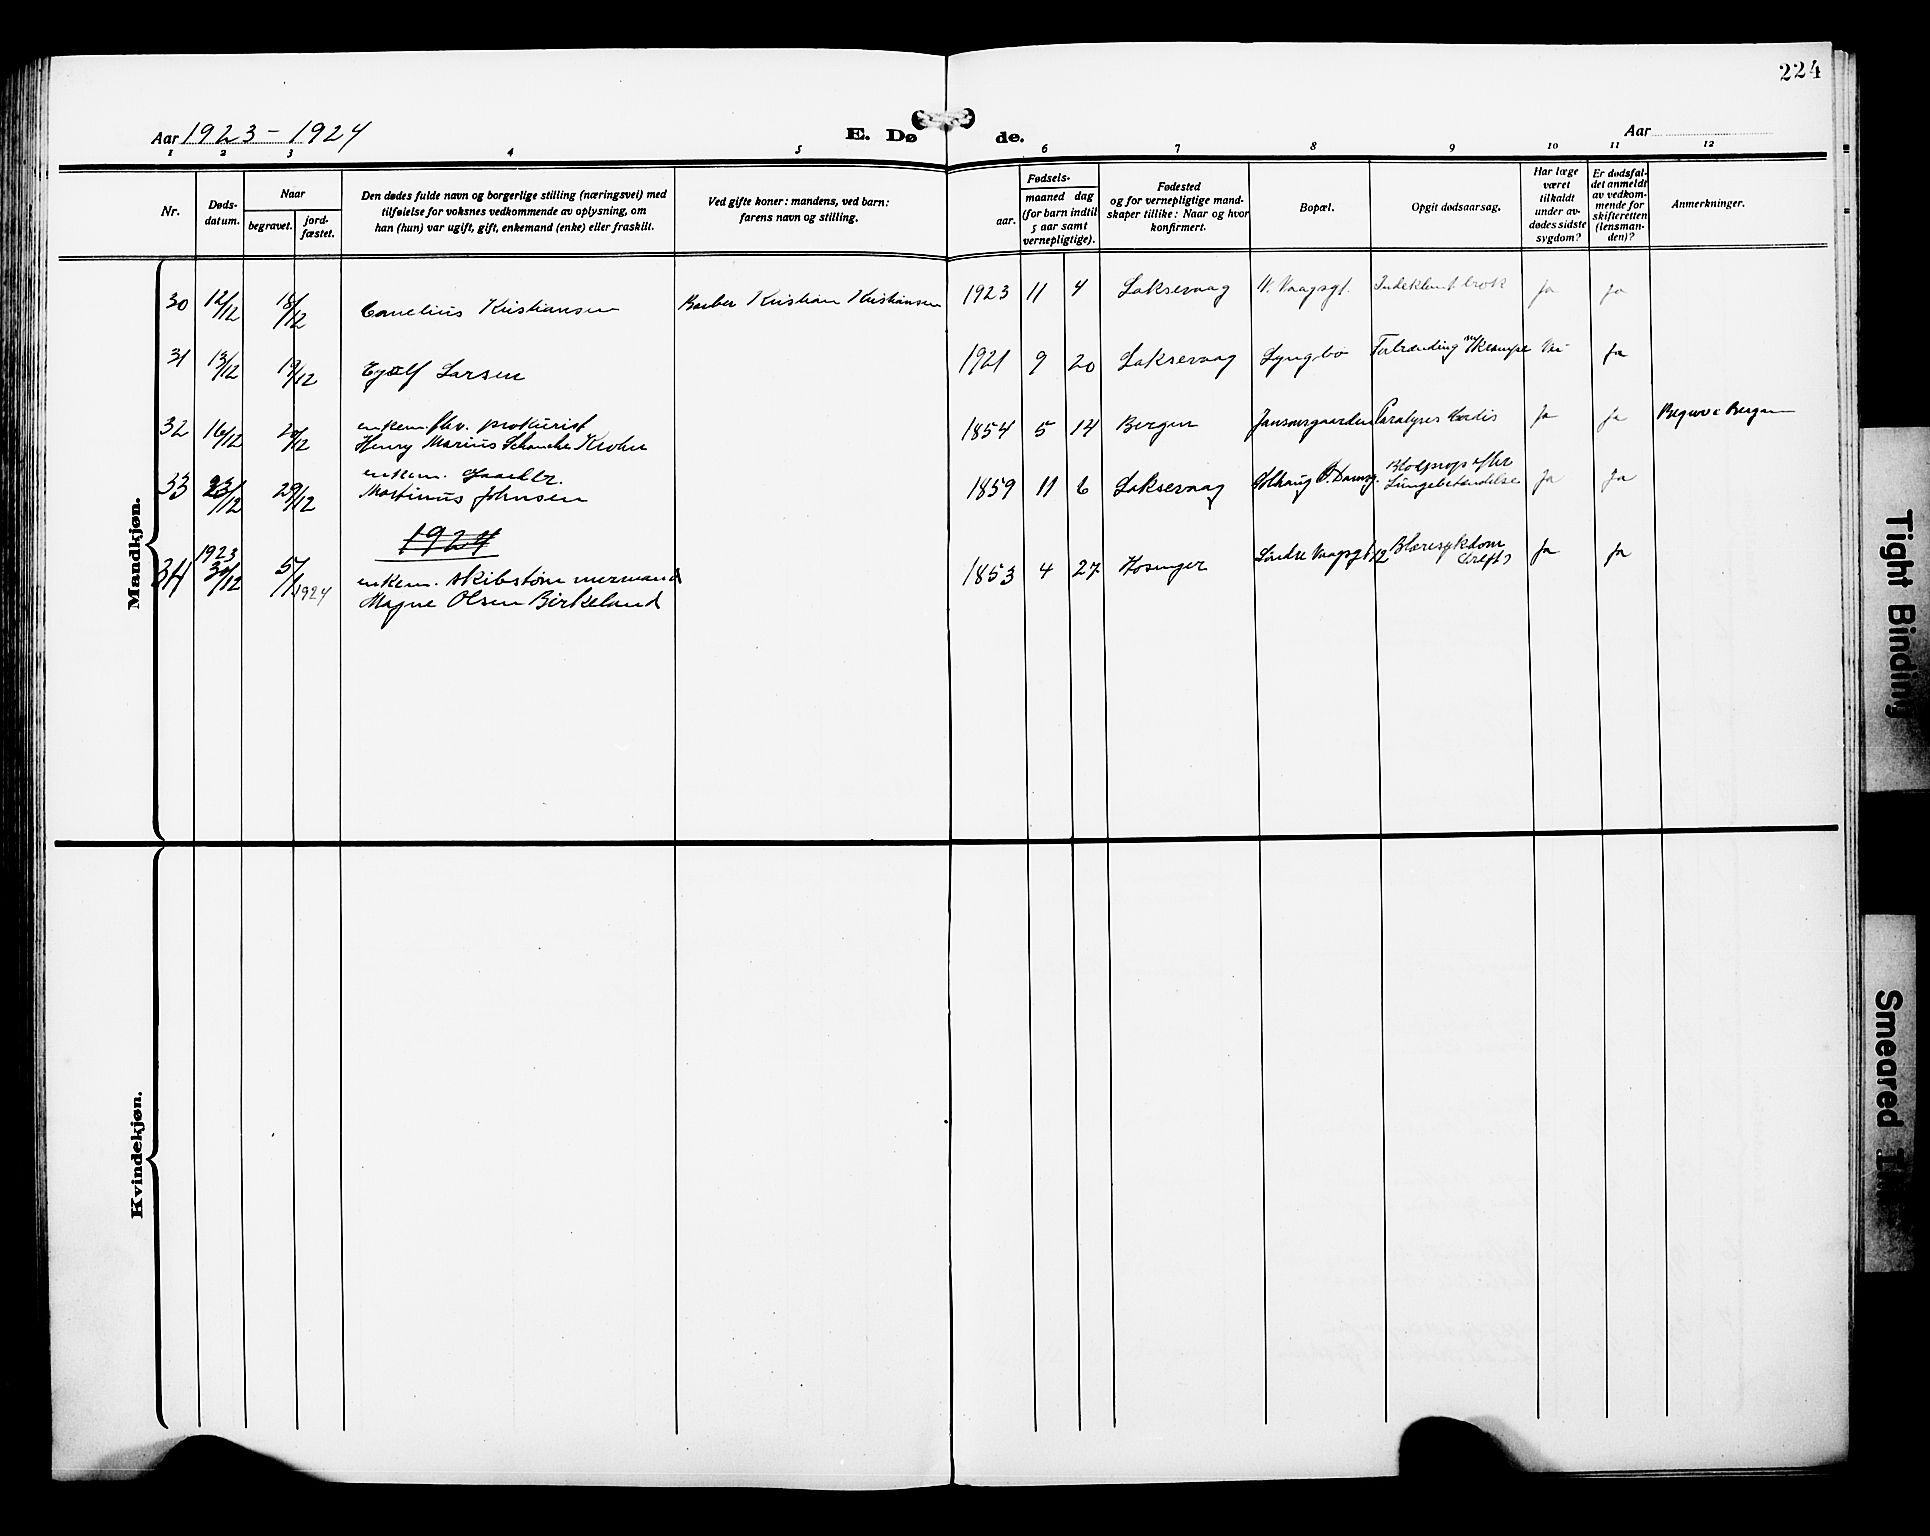 224
Aar 1923 - 1924
E. Dø de.
Aar
1 2 3 4 5 6 7 8 9 10 11 12
Nr.
Døds-
datum.
Naar
begravet.
jord-
fæstet.
Den dødes fulde navn og borgerlige stilling (næringsvei) med
tilføielse for voksnes vedkommende av oplysning, om
han (hun) var ugift, gift, enkemand (enke) eller fraskilt.
Ved gifte koner: mandens, ved barn:
farens navn og stilling.
Fødsels-
aar.
maaned dag
(for barn indtil
5 aar samt
vernepligtige).
Fødested
og for vernepligtige mand-
skaper tillike: Naar og hvor
konfirmert.
Bopæl.
Opgit dødsaarsag.
Har læge
været
tilkaldt
under av-
dødes sidste
sygdom?
Er dødsfal-
det anmeldt
av vedkom-
mende for
skifteretten
(lensman-
den)?
Anmerkninger.
Mandkjøn.
30 12/12 18/12 Cornelius Kristiansen Barber Kristian Kristiansen 1923 11 4 Laksevaag N. Vaagsgt. Indeklemt brok ja ja
31 13/12 19/12 Eyolf Larsen 1921 9 20 Laksevaag Lyngbø Forbrænding m/ Krampe Nei ja
32 16/12 20/12 enkem. fhv. prokurist
Henry Marius Schancke Krohn 1854 5 14 Bergen Jansonsgaarden Paralyses Cordis ja ja Begrav. i Bergen
33 23/12 29/12 enkem.
Martinus Johnsen 1859 11 6 Laksevaag Solhaug D. Damsg. Blodprop efter
Lungebetændelse ja ja
1924
34 1923
30/12 5/1 1924 enkem. skibstømmermand
Magne Olsen Birkeland 1853 4 27 Hosanger Søndre Vaagsgt 12 Blæresykdom
ja ja
Kvindekjøn.
Tight Binding
Smeared